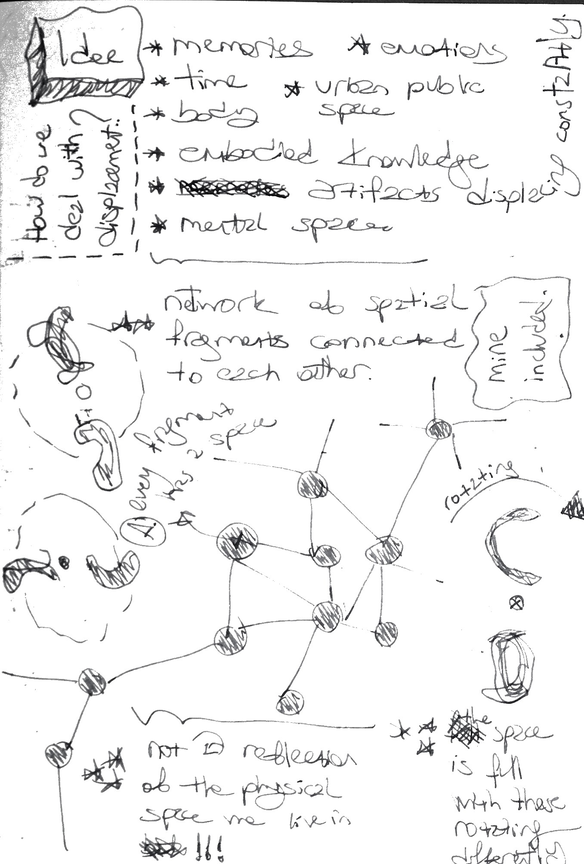 Idee
* memories
* emotions
* time
* urban public
space
* body
* embodied knowledge
* artifacts displacing constantly.
* mental spaces
How do we
deal with
displacement?
** network of spatial
fragments connected
to each other.
mine
included.
every fragment
has a space
A
rotating
not a reflection
of the physical
space we live in
!!!
the
space
is full
with these
rotating
differently